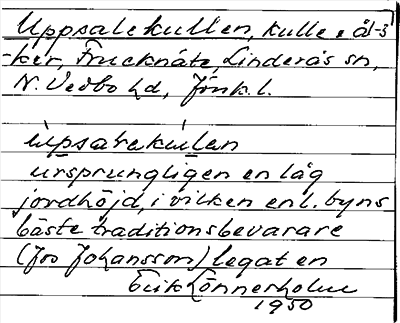 Uppsalekullen, kulle i åls-
ker, Frucknäte, Linderås sn,
N. Vedbo hd, Jönk. l.
ùpsalakùlan
ursprungligen en låg
jordhöjd, i vilken enl. byns
bäste traditionsbevarare
(Joo Johansson) legat en
Erik Lönnerholm
1950